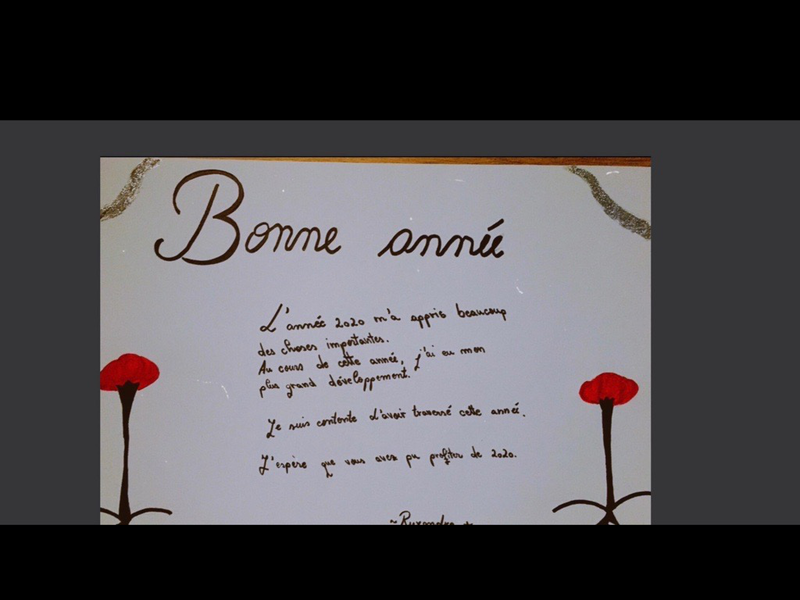 Bonne année
L'année 2020 m'a appris beaucoup
des choses importantes.
Au cours de cette année, j'ai eu mon
plus grand développement.
Je suis contente d'avoir traversé cette année.
J'espère que vous avez pu profiter de 2020.